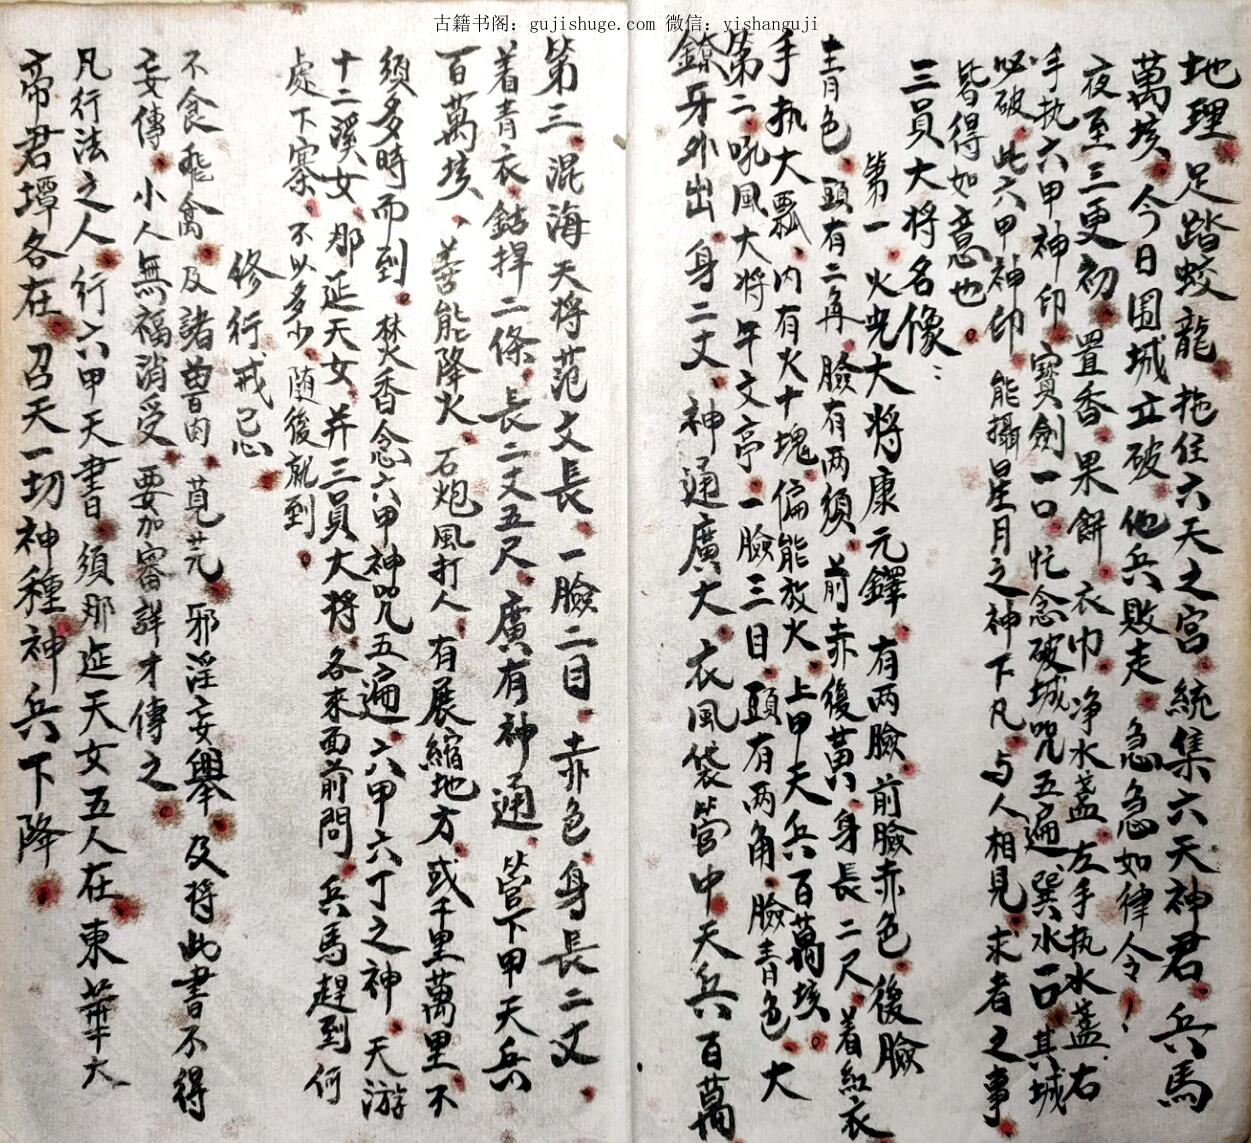 古籍书阁：gujishuge.com 微信：yishanguji
地理足踏蛟龍拖住六天之宫統集六天神君兵馬
萬垓今日围城立破他兵敗走急急如律令
夜至三更初置香果餅衣巾净水盏左手执水盏右
手执六甲神印寳劍一口忙念破城咒五遍巽水一口其城
必破此六甲神印能攝星月之神下凡与人相見求者之事
皆得如意也
三員大将名像
第一火光大将康元鐸有两臉前臉赤色後臉
青色頭有二角臉有两须前赤後黄身長二尺着紅衣
手执大瓢内有火十塊偏能放火上甲天兵百萬垓
第二吼风大将年文亭一臉三目頭有两角臉青色大
鐐牙外出身二丈神通廣大衣風袋营中天兵百萬
第三混海天将范文長一臉二目赤色身長二丈
着青衣鈷捍二條長二丈五尺廣有神通营下甲天兵
百萬垓善能降火石炮風打人有展縮地方或千里萬里不
须多時而到焚香念六甲神咒五遍六甲六丁之神天游
十二溪女那延天女并三員大将各來面前問兵馬趕到何
處下寨不以多少随後就到
修行戒忌
不食飛禽及諸曾肉莧芫邪淫妄舉及将此書不得
妄傳小人無福消受要加審詳才傳之
凡行法之人行六甲天書須那延天女五人在東華大
帝君壇各在召天一切神種神兵下降